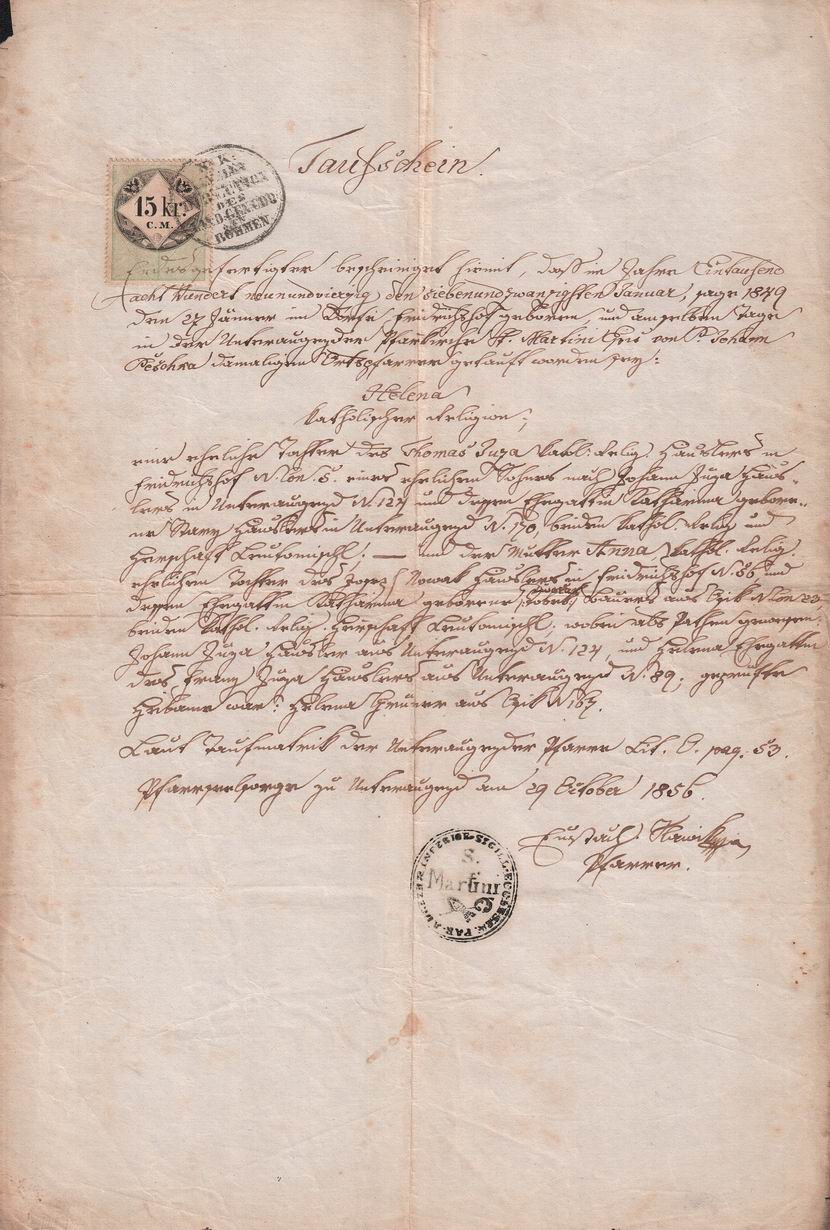 Taufschein.
15 kr.
C. M.
BÖHMEN
Endesgefertigter bescheiniget hiemit, daß im Jahre Eintausend
acht Hundert neunundvierzig, den siebenundzwanzigsten Januar, sage 1849
den 27 Jänner im Dorfe Friedrichshof geboren, und am selben Tage
in der Unteraugezder Pfarrkirche St. Martini von P. Johann
Peschka damaligen Ortspfarrer getauft worden sey:
Helena
katholischer Religion;
eine eheliche Tochter des Thomas Zuza kathol. Relig. Häuslers in
Friedrichshof N. 5. eines ehelichen Sohnes nach Johann Zuza Häus-
lers in Unteraugezd N. 124 und dessen Ehegattin Katharina gebore-
ne Stary Häuslers in Unteraugezd N. 170, beiden kathol. Relig. und
Herschaft Leutomischl; — und der Mutter Anna kathol. Relig.
ehelichen Tochter des Josef Nowak Häuslers in Friedrichshof N. 86 und
dessen Ehegattin Katharina geborene Bauers aus N. 23,
beiden kathol. Relig. Herschaft Leutomischl; wobei als Pathen gewesen:
Johann Zuza Häusler aus Unteraugezd N. 124, und Helena Ehegattin
des Franz Zuza Häuslers aus Unteraugezd N. 89; geprüfte
Hebame war: Helena aus N. 167.
Laut Taufmatrik der Unteraugezder Pfarre Lit. C. pag. 53.
Pfarrseelsorge zu Unteraugezd am 29 October 1856.
Eustach
Pfarrer.
S.
Martini